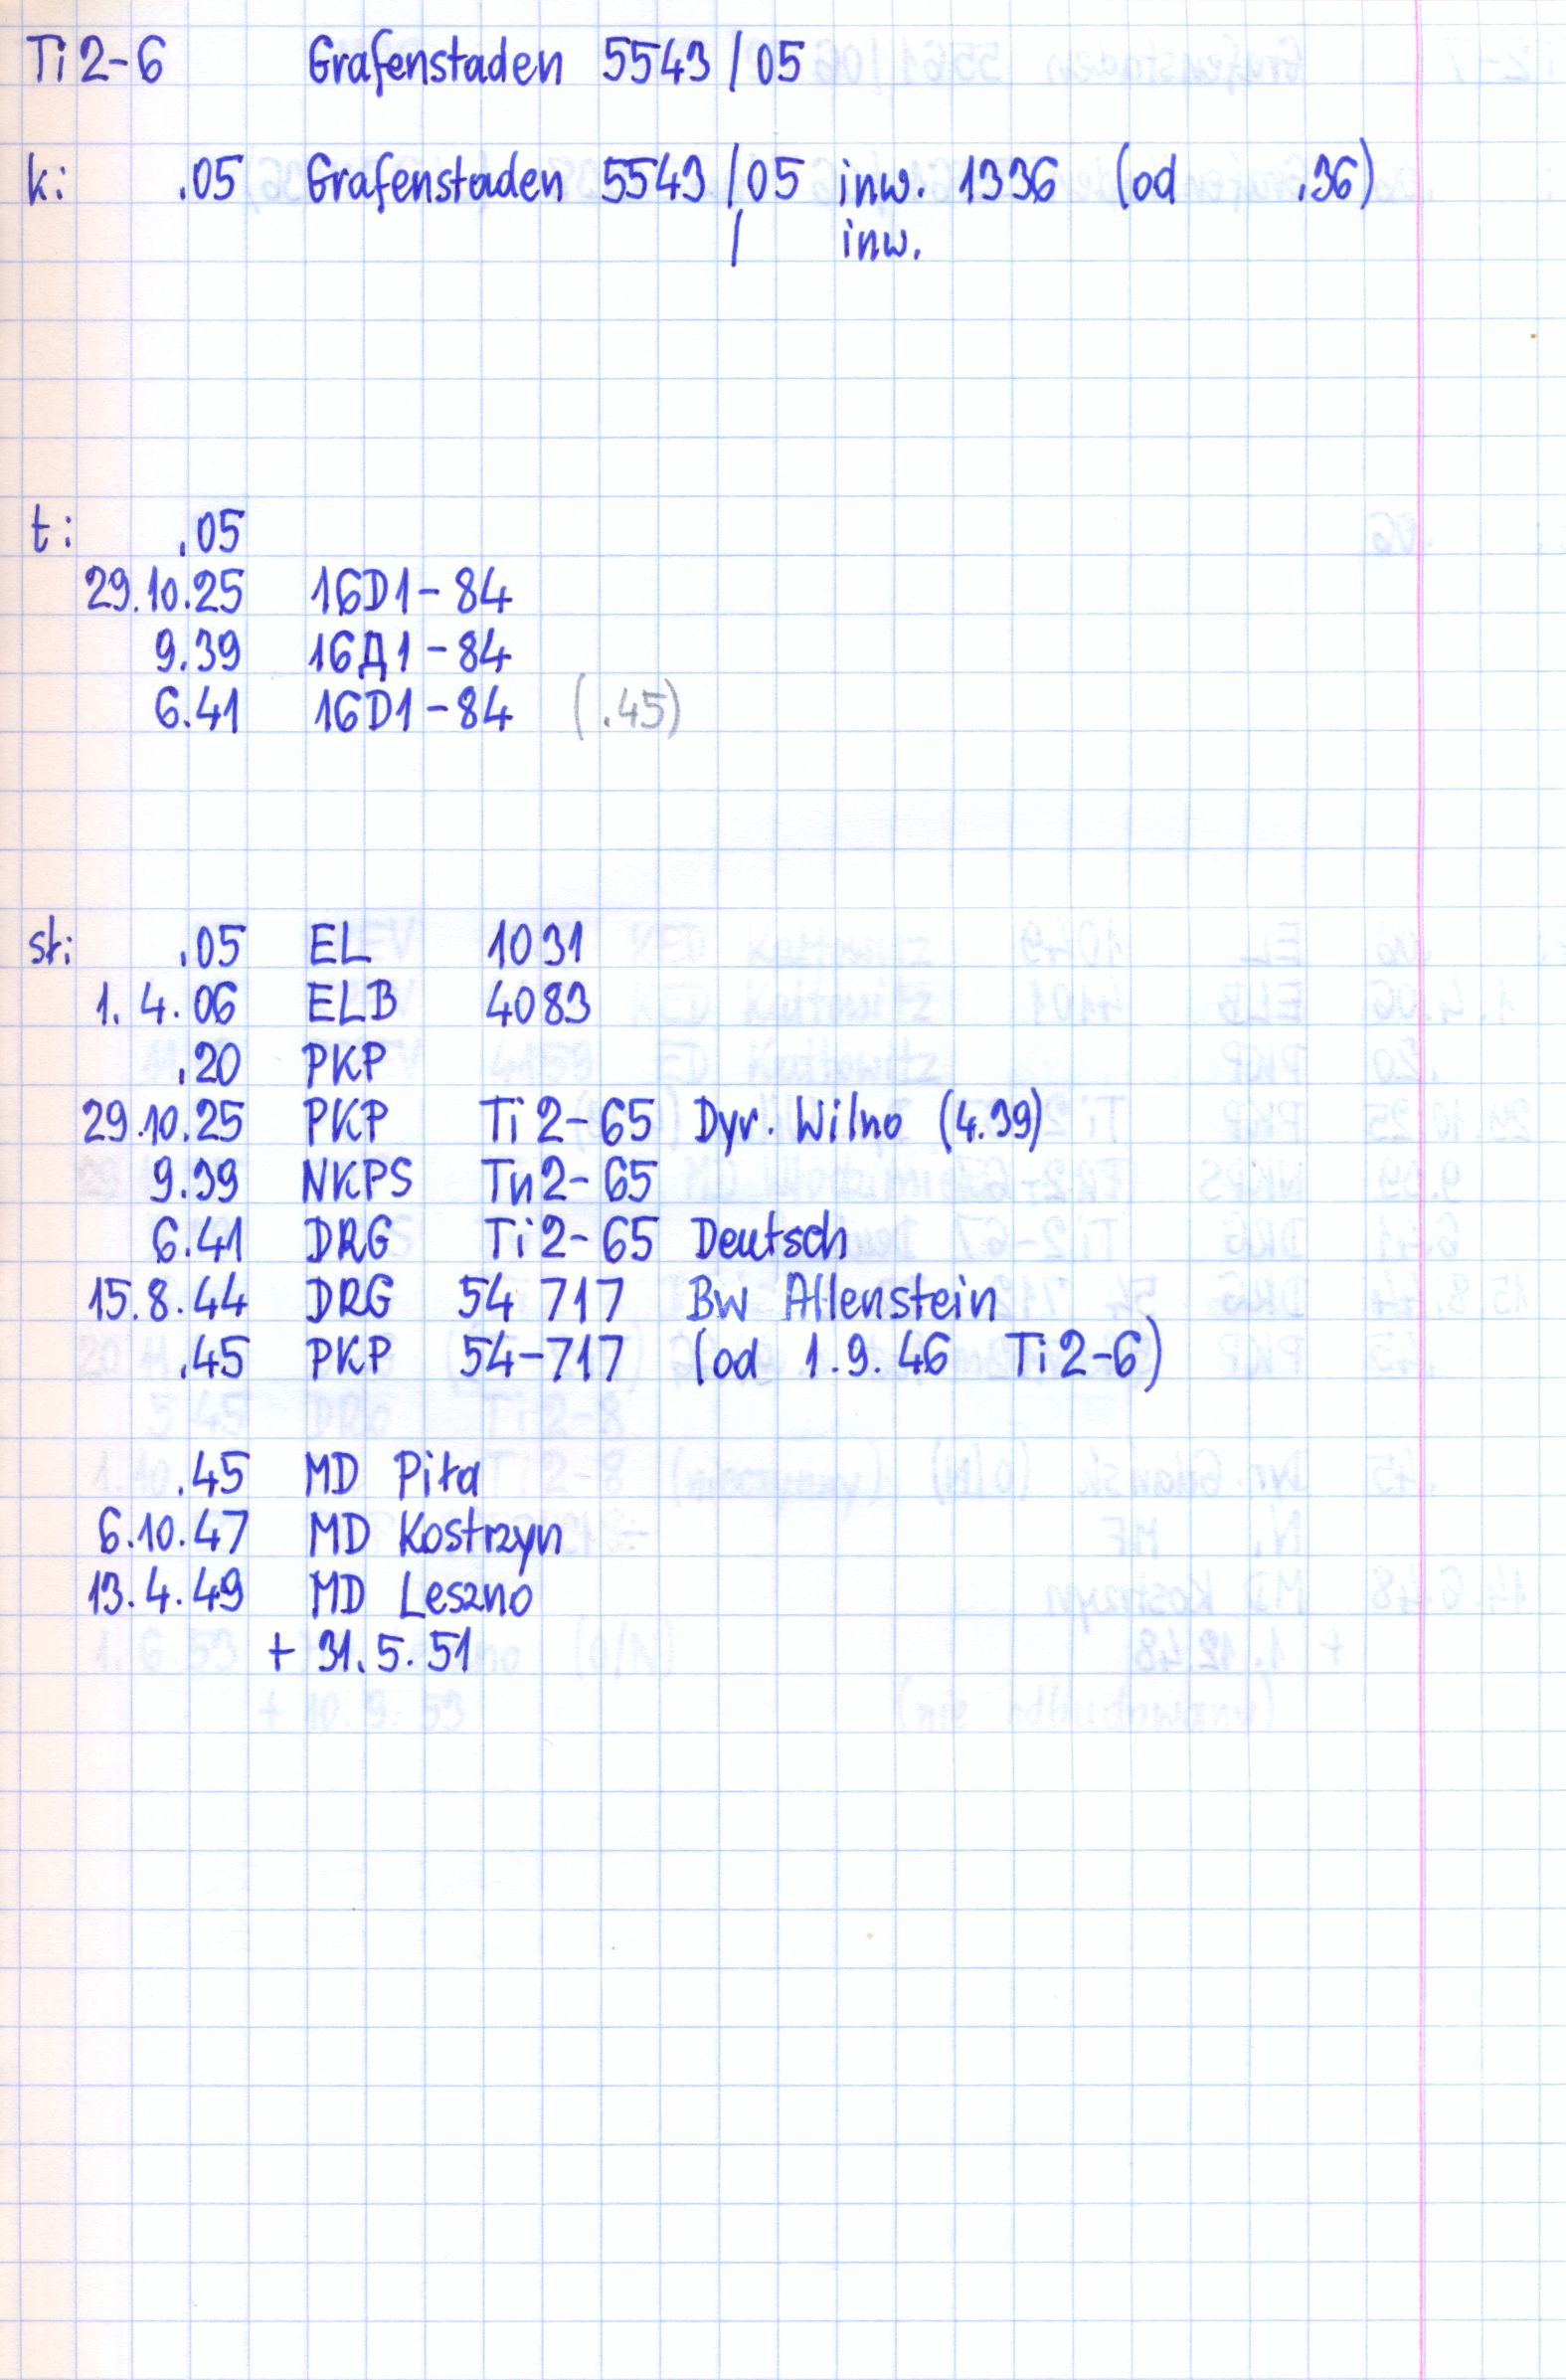 Ti2-6 Grafenstaden 5543/05
k: .05 Grafenstaden 5543/05 inw. 1336 (od .36)
/ inw.
t: .05
29.10.25 16D1-84
9.39 16Д1-84
6.41 16D1-84 (.45)
st: .05 EL 1031
1.4.06 ELB 4083
.20 PKP
29.10.25 PKP Ti2-65 Dyr. Wilno (4.39)
9.39 NKPS Tи2-65
6.41 DRG Ti2-65 Deutsch
15.8.44 DRG 54 717 Bw Allenstein
.45 PKP 54-717 (od 1.9.46 Ti2-6)
.45 MD Piła
6.10.47 MD Kostrzyn
13.4.49 MD Leszno
+ 31.5.51